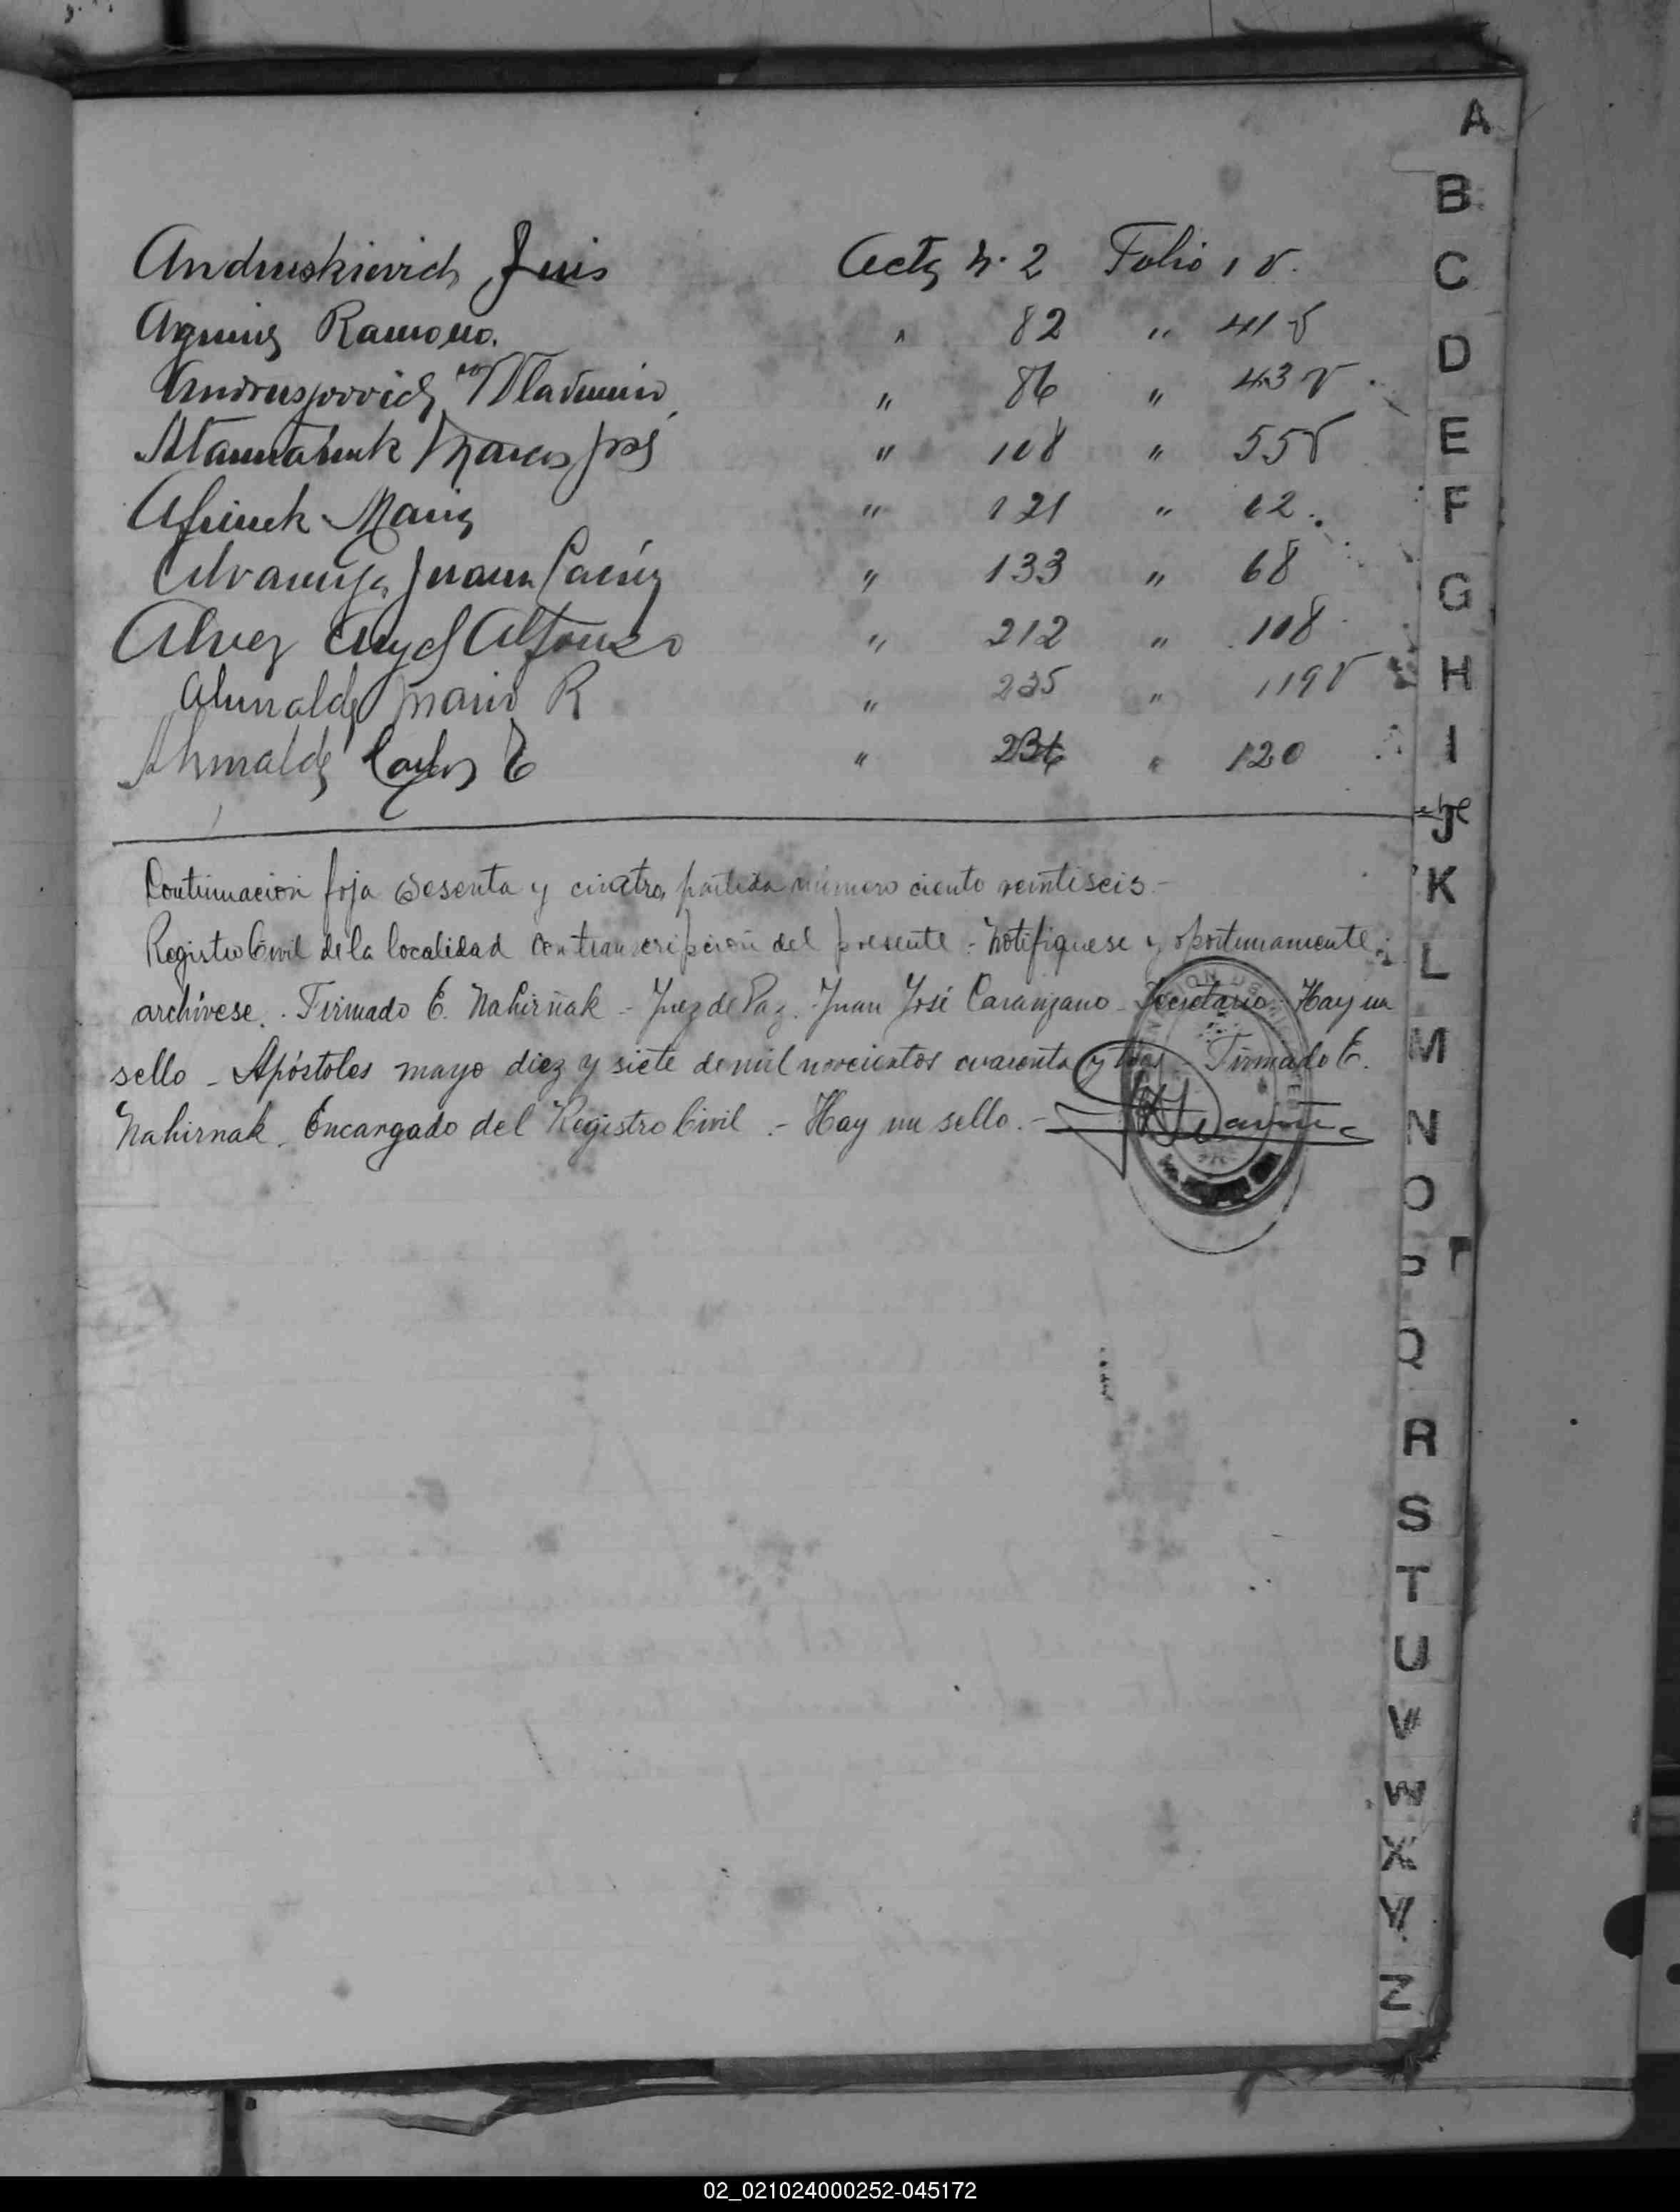 A
B
C
D
E
F
G
H
I
J
K
L
M
N
O
P
Q
R
S
T
U
V
W
X
Y
Z
Andruskievich Luis Acta N. 2 Folio 1 v.
Ramona. " 82 " 41 v
Wladimiro " 86 " 43 v
Marcos José " 108 " 55 v
Maria " 121 " 62.
Juana " 133 " 68
Alvez Angel Alfonso " 212 " 108
Mario R " 235 " 119 v
Carlos E " 236 " 120
Continuación foja sesenta y cuatro, partida número ciento veintiseis.-
Registro Civil de la localidad con transcripción del presente.- Notifíquese y oportunamente
archívese.. Firmado E. Nahirñak - Juez de Paz. Juan José Caranzano - Secretario. Hay un
sello - Apóstoles mayo diez y siete de mil novecientos cuarenta y tres - Firmado E.
Nahirnak. Encargado del Registro Civil.- Hay un sello.-
02_021024000252-045172